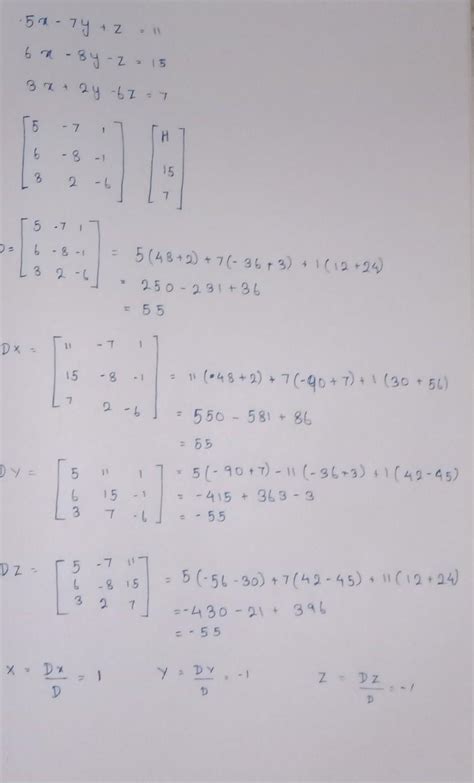 5x - 7y + z = 11
6x - 8y - z = 15
3x + 2y - 6z = 7
[ 5 -7 1 ] [ 11 ]
[ 6 -8 -1 ] [ 15 ]
[ 3 2 -6 ] [ 7 ]
D = [ 5 -7 1 ]
[ 6 -8 -1 ] = 5(48+2) + 7(-36+3) + 1(12+24)
[ 3 2 -6 ] = 250 - 231 + 36
= 55
Dx = [ 11 -7 1 ]
[ 15 -8 -1 ] = 11(48+2) + 7(-90+7) + 1(30+56)
[ 7 2 -6 ] = 550 - 581 + 86
= 55
DY = [ 5 11 1 ] = 5(-90+7) - 11(-36+3) + 1(42-45)
[ 6 15 -1 ] = -415 + 363 - 3
[ 3 7 -6 ] = -55
DZ = [ 5 -7 11 ] = 5(-56-30) + 7(42-45) + 11(12+24)
[ 6 -8 15 ] = -430 - 21 + 396
[ 3 2 7 ] = -55
X = Dx/D = 1 Y = DY/D = -1 Z = DZ/D = -1